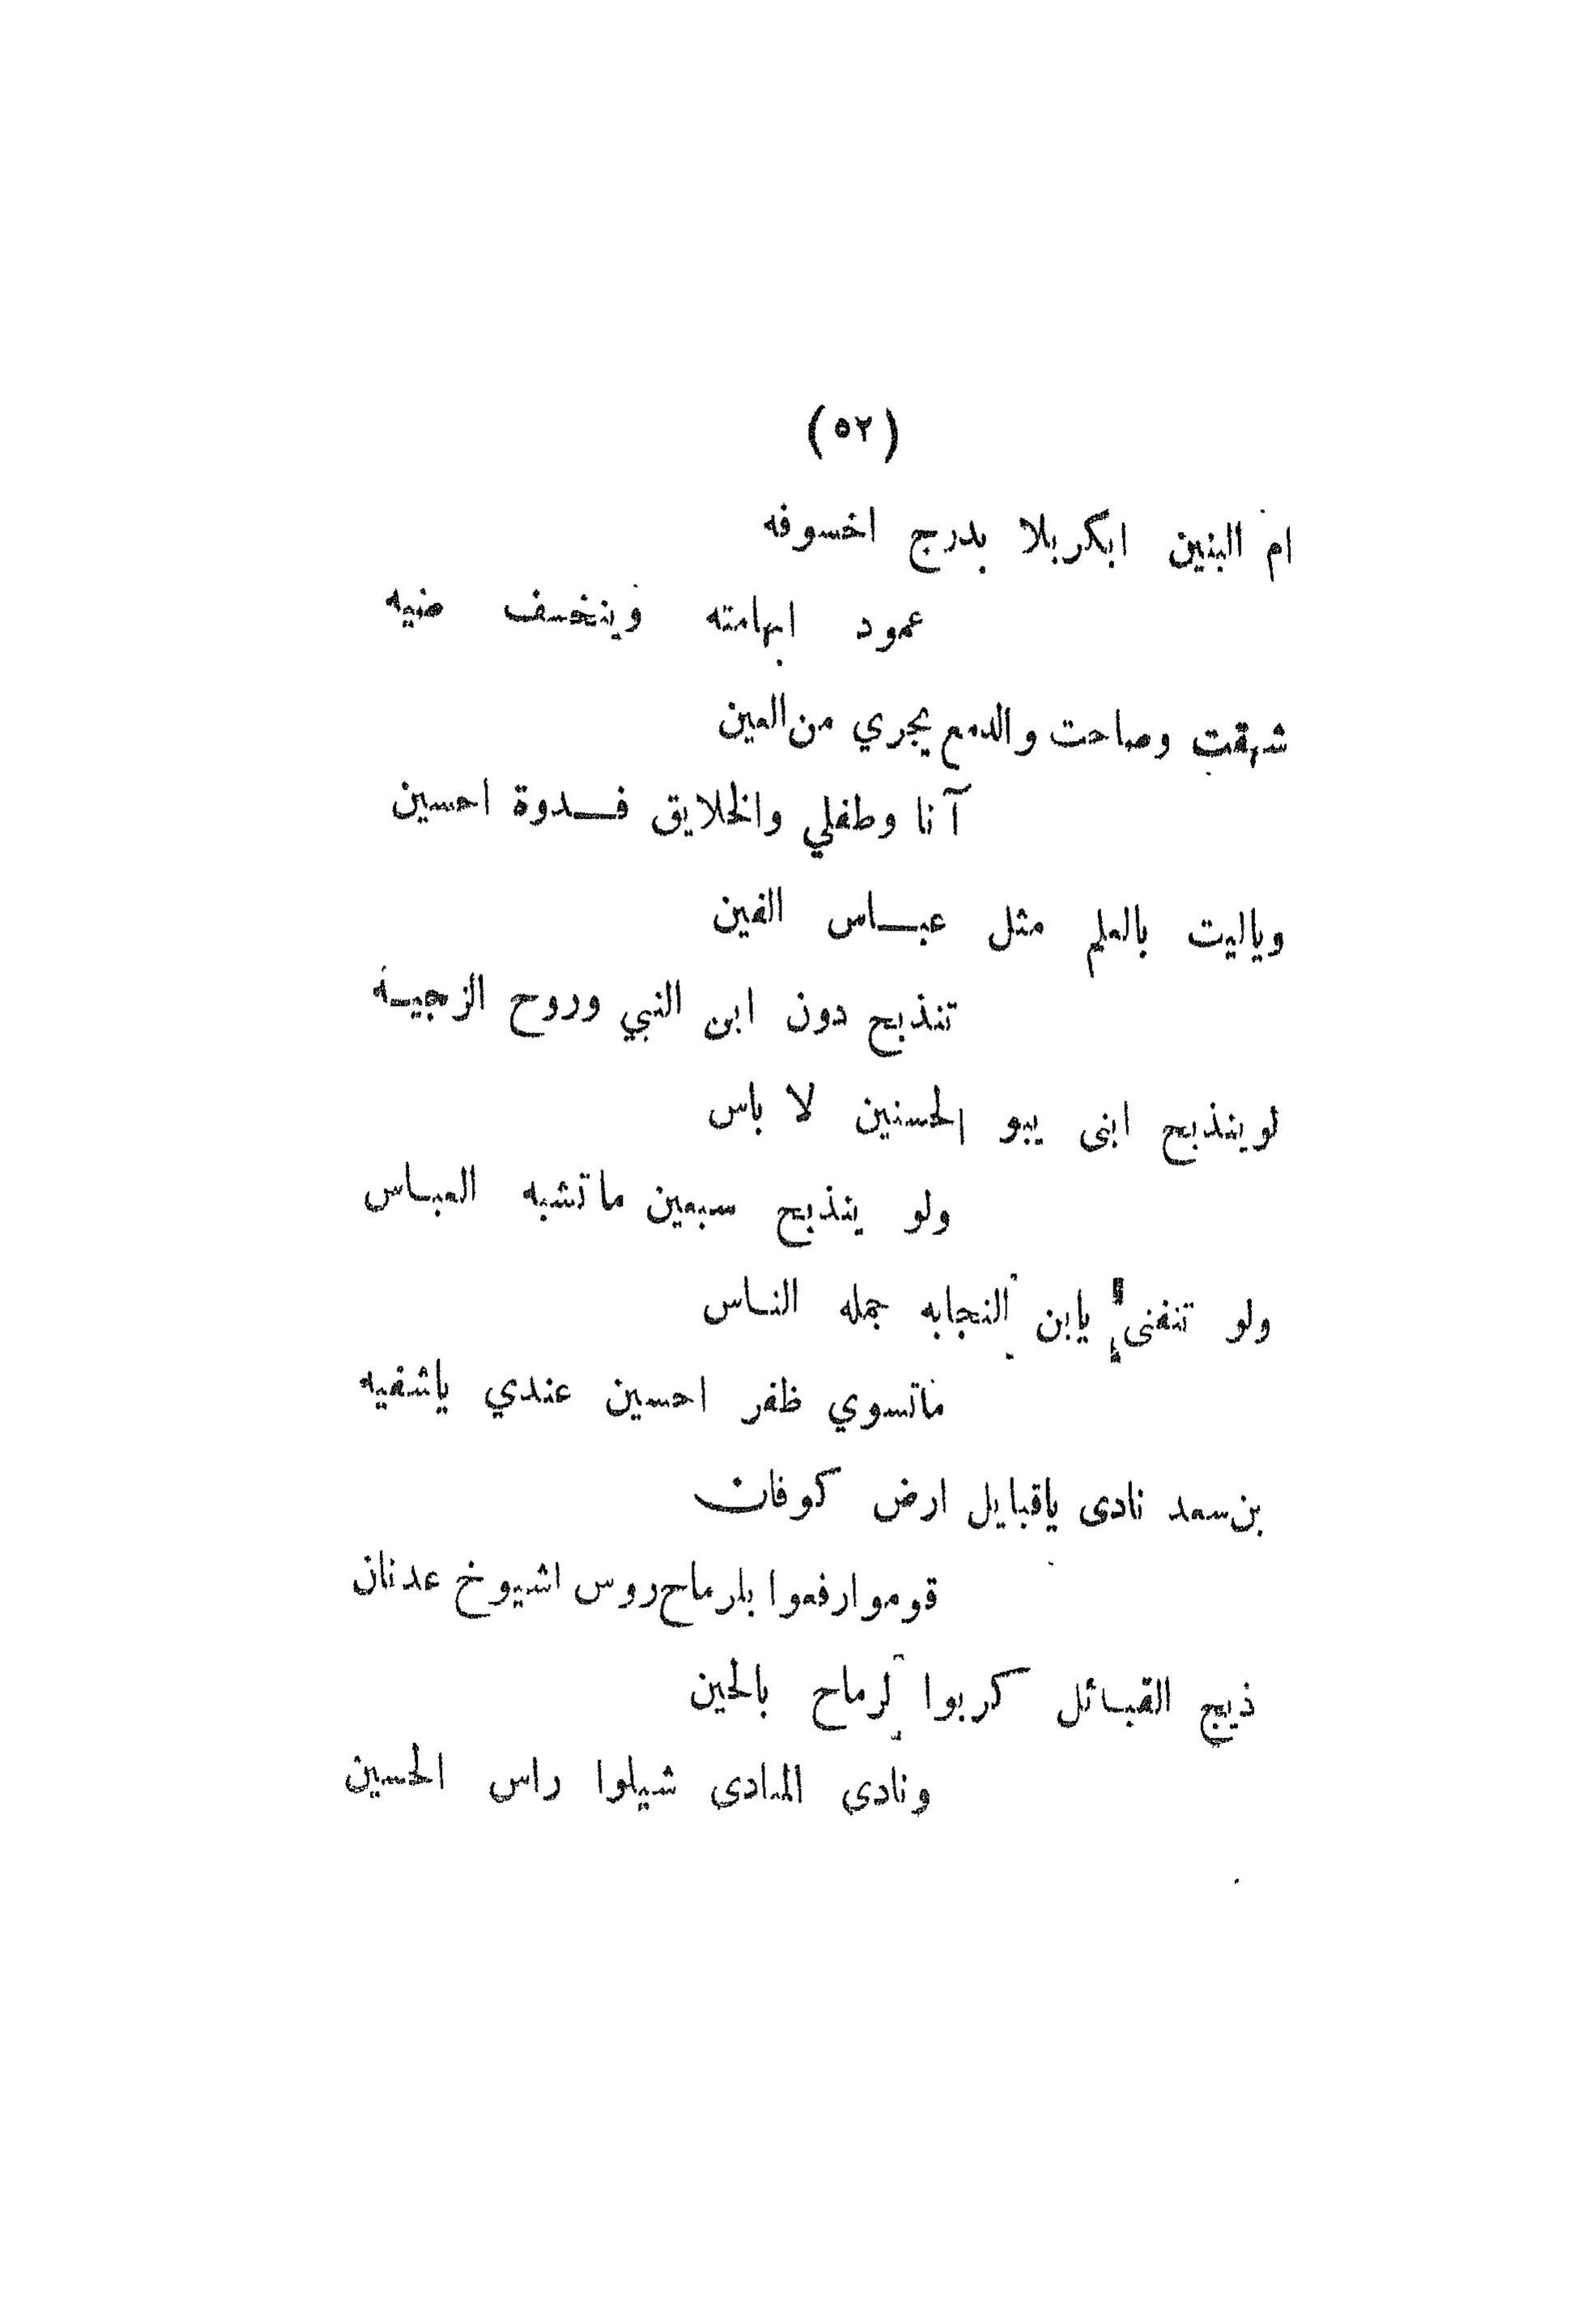 (٥٢)
ام البنين ابكربلا بدرج اخسوفه
عمود ابهامته وينخسف ضيه
شهقت وصاحت والدمع يجري من العين
آنا وطفلي والخلايق فــدوة احسين
وياليت بالعلم مثل عبــاس الفين
تنذبح دون ابن النبي وروح الزجيـة
لو ينذبح ابنى يبو الحسنين لا باس
ولو ينذبح سبعين ماتشبه العبـاس
ولو تنفنى يابن النجابه جمله النـاس
ماتسوي ظفر احسين عندي ياشفيه
بن سعد نادى ياقبايل ارض كوفان
قوموا ارفعوا بلرماح روس اشيوخ عدنان
ذيج القبـائل كربوا لرماح بالحين
ونادى المنادى شيلوا راس الحسين